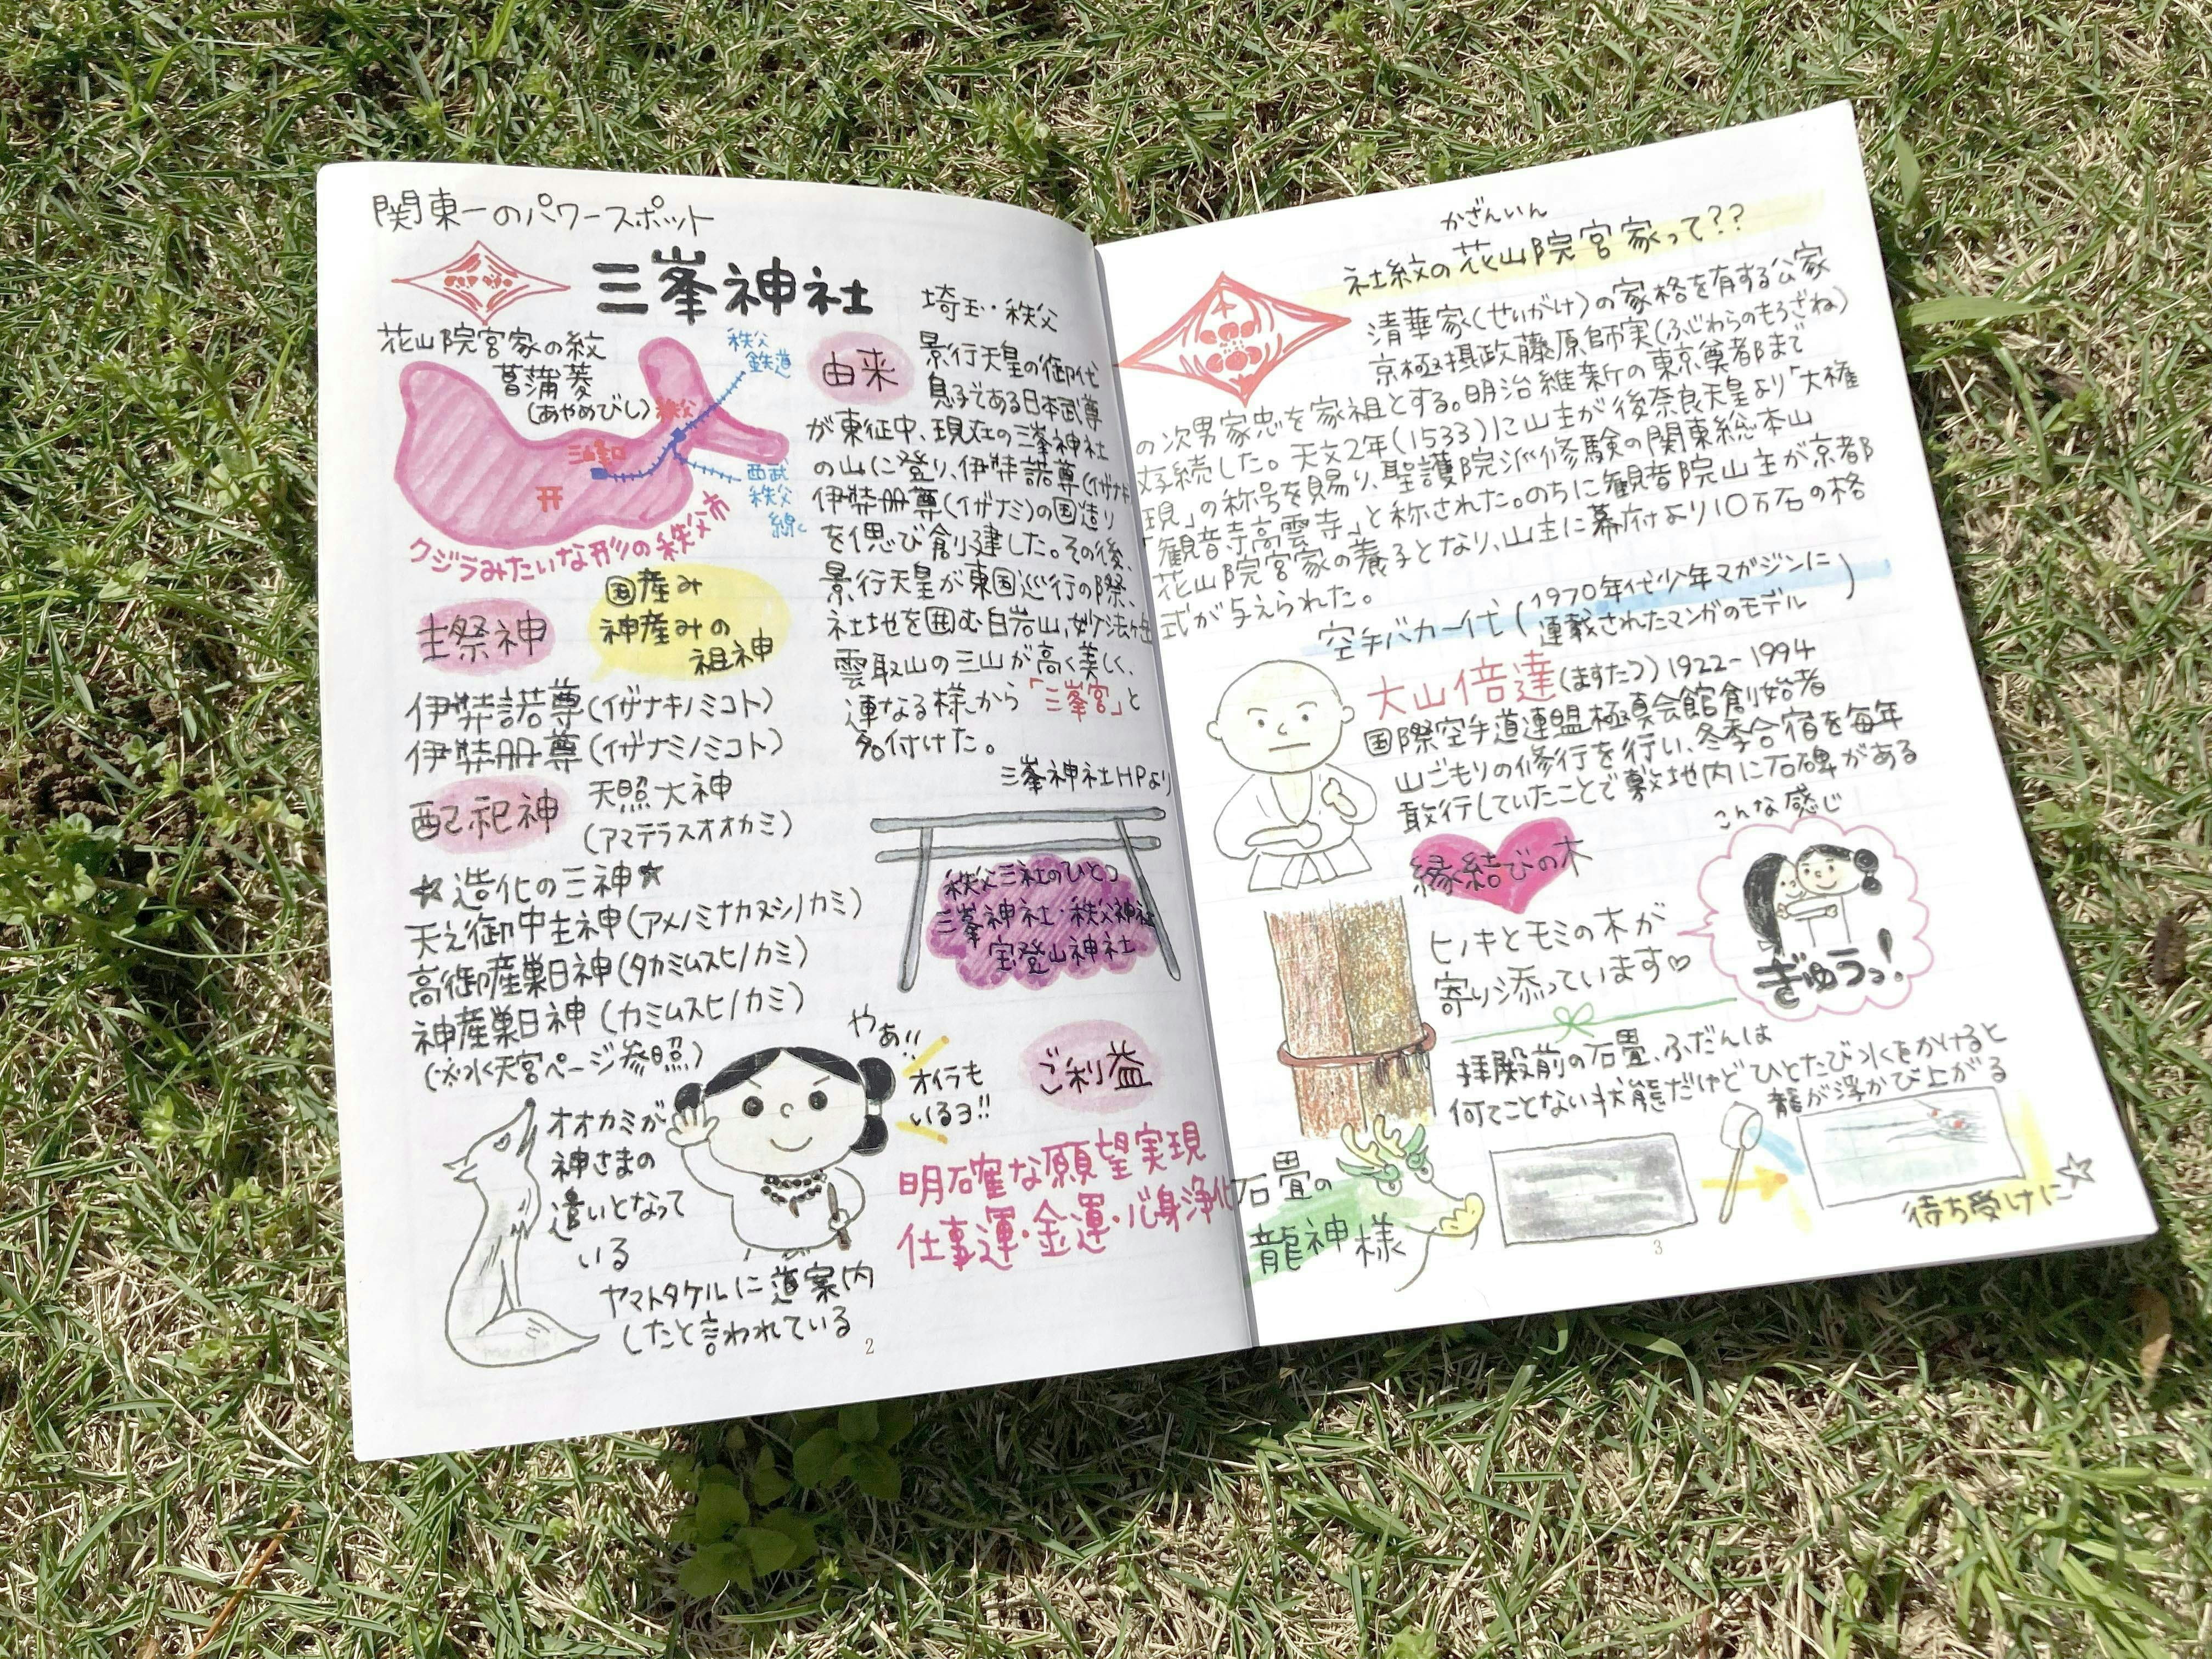 関東一のパワースポット
三峯神社
埼玉・秩父
花山院宮家の紋
菖蒲菱
(あやめびし)
秩父
鉄道
秩父
三峯口
西武
秩父
線
クジラみたいな形の秩父市
主祭神
国産み
神産みの
祖神
伊弉諾尊(イザナキノミコト)
伊弉册尊(イザナミノミコト)
配祀神
天照大神
(アマテラスオオカミ)
☆造化の三神☆
天之御中主神(アメノミナカヌシノカミ)
高御産巣日神(タカミムスヒノカミ)
神産巣日神(カミムスヒノカミ)
(※水天宮ページ参照)
オオカミが
神さまの
遣いとなって
いる
ヤマトタケルに道案内
したと言われている
由来
景行天皇の御代
息子である日本武尊
が東征中、現在の三峯神社
の山に登り、伊弉諾尊(イザナキ)
伊弉册尊(イザナミ)の国造り
を偲び創建した。その後、
景行天皇が東国巡行の際、
社地を囲む白岩山、妙法ヶ岳
雲取山の三山が高く美しく、
連なる様から「三峯宮」と
名付けた。
三峯神社HPより
秩父三社のひとつ
三峯神社・秩父神社
宝登山神社
やぁ!!
オイラも
いるヨ!!
ご利益
明確な願望実現
仕事運・金運・心身浄化
2
かざんいん
社紋の花山院宮家って??
清華家(せいがけ)の家格を有する公家
京極摂政藤原師実(ふじわらのもろざね)
の次男家忠を家祖とする。明治維新の東京奠都まで
存続した。天文2年(1533)に山主が後奈良天皇より「大権
現」の称号を賜り、聖護院派修験の関東総本山
「観音寺高雲寺」と称された。のちに観音院山主が京都
花山院宮家の養子となり、山主に幕府より10万石の格
式が与えられた。
空手バカ一代(1970年代少年マガジンに
連載されたマンガのモデル)
大山倍達(ますたつ)1922-1994
国際空手道連盟極真会館創始者
山ごもりの修行を行い、冬季合宿を毎年
敢行していたことで敷地内に石碑がある
縁結びの木
こんな感じ
ヒノキとモミの木が
寄り添っています♡
ぎゅうっ!
拝殿前の石畳、ふだんは
何てことない状態だけどひとたび水をかけると
龍が浮かび上がる
石畳の
龍神様
待ち受けに☆
3